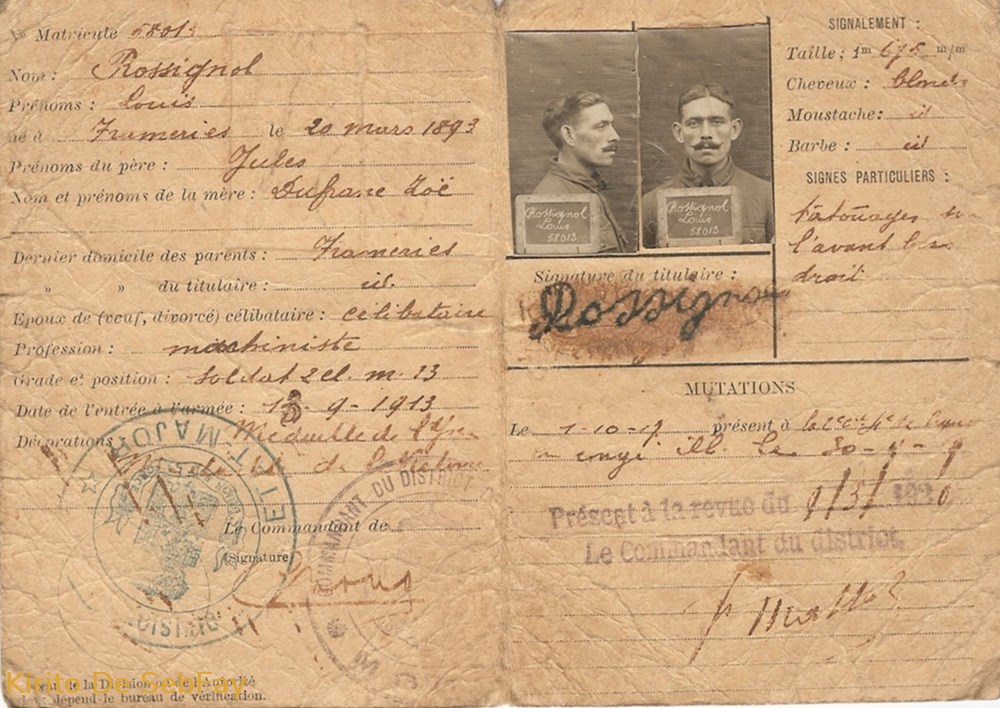 No Matricule 58013
Nom : Rossignol
Prénoms : Louis
né à Frameries le 20 mars 1893
Prénoms du père : Jules
Nom et prénoms de la mère : Dufrane Zoë
Dernier domicile des parents : Frameries
" " du titulaire : id.
Epoux de (veuf, divorcé) célibataire : célibataire
Profession : machiniste
Grade et position : Soldat 2 cl. m. 13
Date de l'entrée à l'armée : 13-9-1913
Décorations Médaille de
de la Victoire
ETAT MAJOR
DISTRIB
Le Commandant de
(Signature)
COMMANDANT DU DISTRICT
de la Division ou de l'Autorité
dont dépend le bureau de vérification.
Kirito De SebEmr
Rossignol
Louis
58013
Rossignol
Louis
58013
Signature du titulaire :
Rossignol
SIGNALEMENT :
Taille ; 1m 675 m/m
Cheveux : blonds
Moustache : id
Barbe : id
SIGNES PARTICULIERS :
tatouages sur
l'avant bras
droit
MUTATIONS
Le 1-10-19 présent à la
en congé ill. le 30-9-9
Présent à la revue du 9/3/1920
Le Commandant du district.